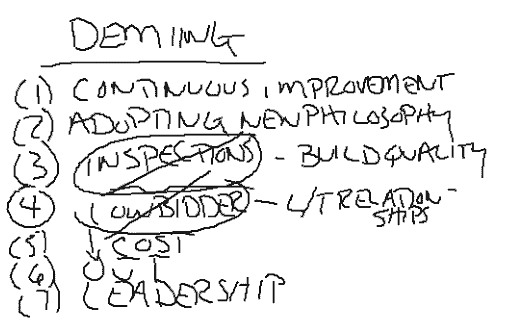 DEMING
(1) CONTINUOUS IMPROVEMENT
(2) ADOPTING NEW PHILOSOPHY
(3) INSPECTIONS - BUILD QUALITY
(4) LOW BIDDER - L/T RELATION-
SHIPS
(5) ↓ COST
(6)
(7) LEADERSHIP